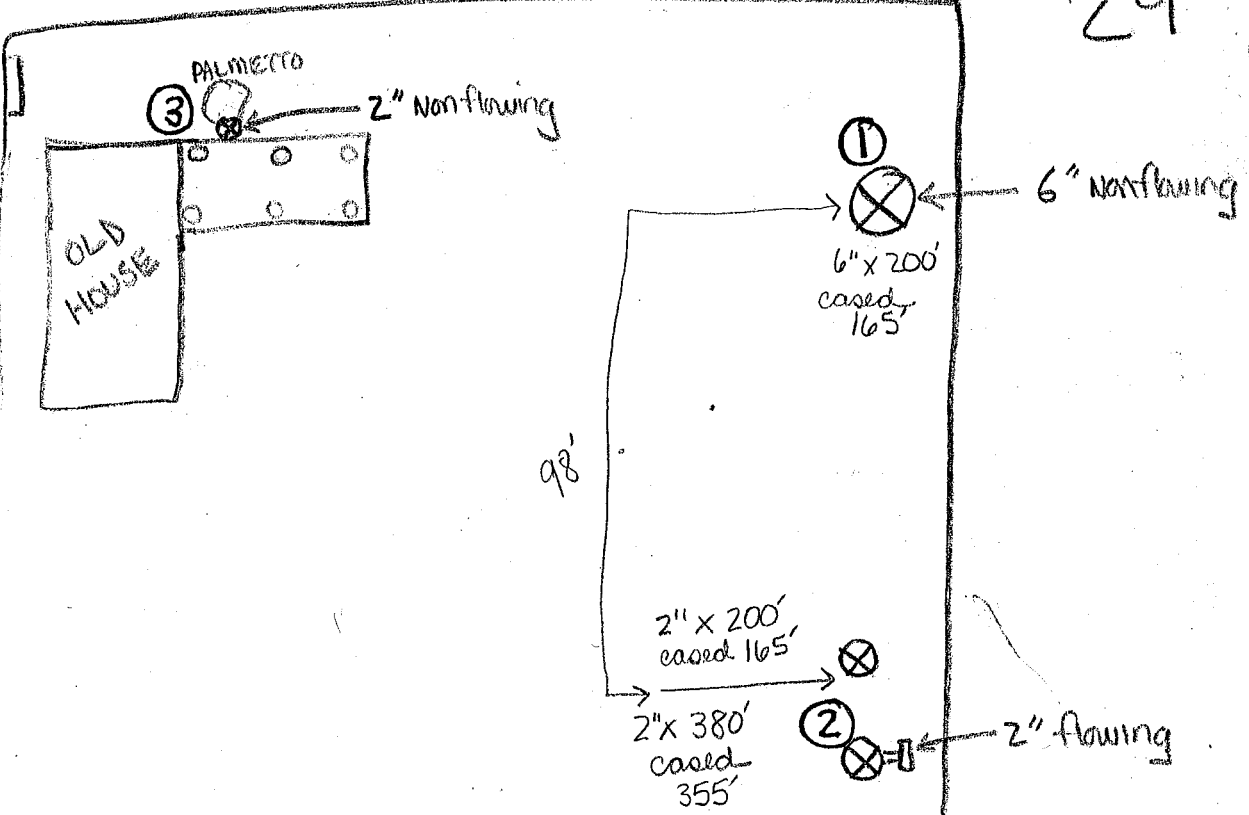 29
PALMETTO
③
2" Nonflowing
①
6" Nonflowing
OLD
HOUSE
6" X 200'
cased
165'
98'
2" X 200'
cased 165'
2" X 380'
cased
355'
②
2" flowing